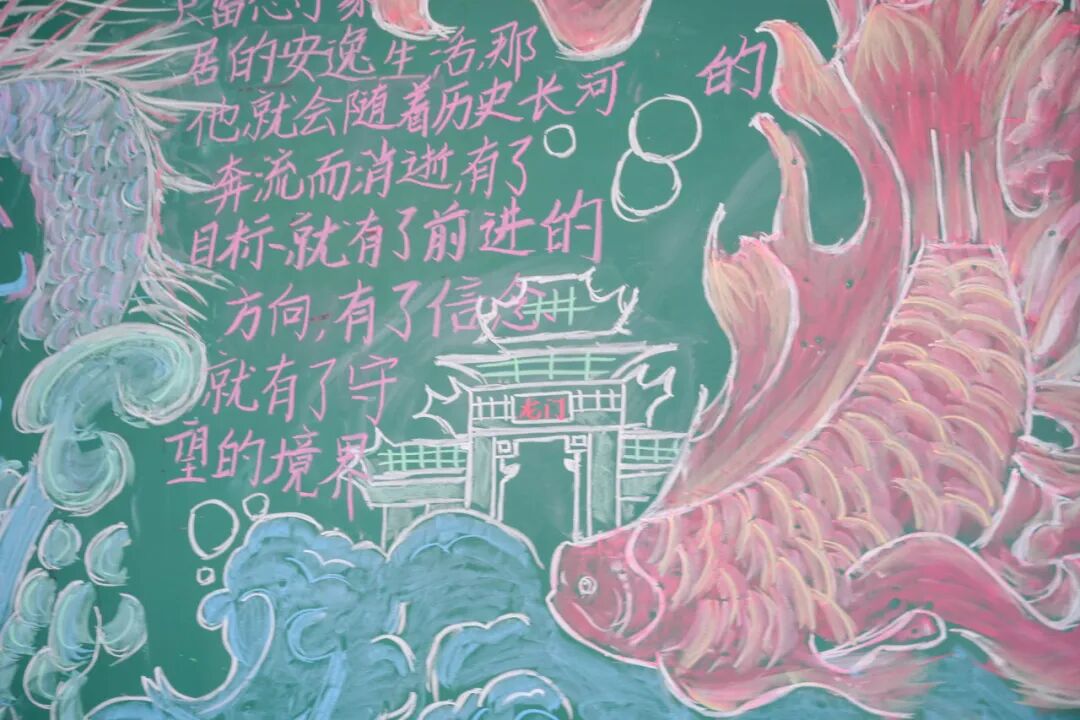 只留恋于家
居的安逸生活,那
他,就会随着历史长河
奔流而消逝,有了
目标、就有了前进的
方向,有了信念
就有了守
望的境界
的
龙门